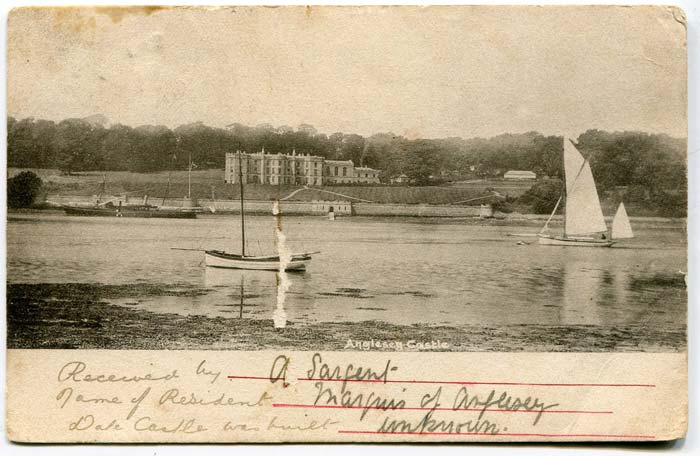 Anglesey Castle
Received by A Sargent
Name of Resident Marquis of Anglesey
Date Castle was built unknown.